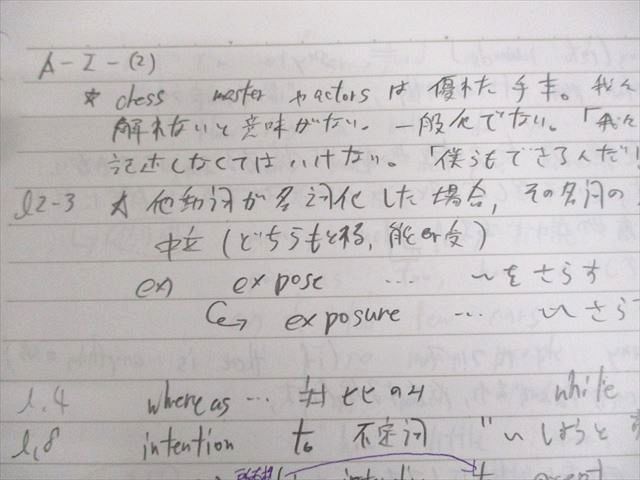 A-I-(2)
* chess master や actors は優れた手本。我々
解れないと意味がない。一般化でない。「我々
記述しなくてはいけない。「僕らもできるんだ!
l2-3 * 他動詞が名詞化した場合, その名詞の
中立 (どちらもとる, 能or受)
ex) expose … 〜をさらす
↳ exposure … 〜さら
l.4 whereas … 対比の while
l.8 intention to 不定詞 "〜しようと